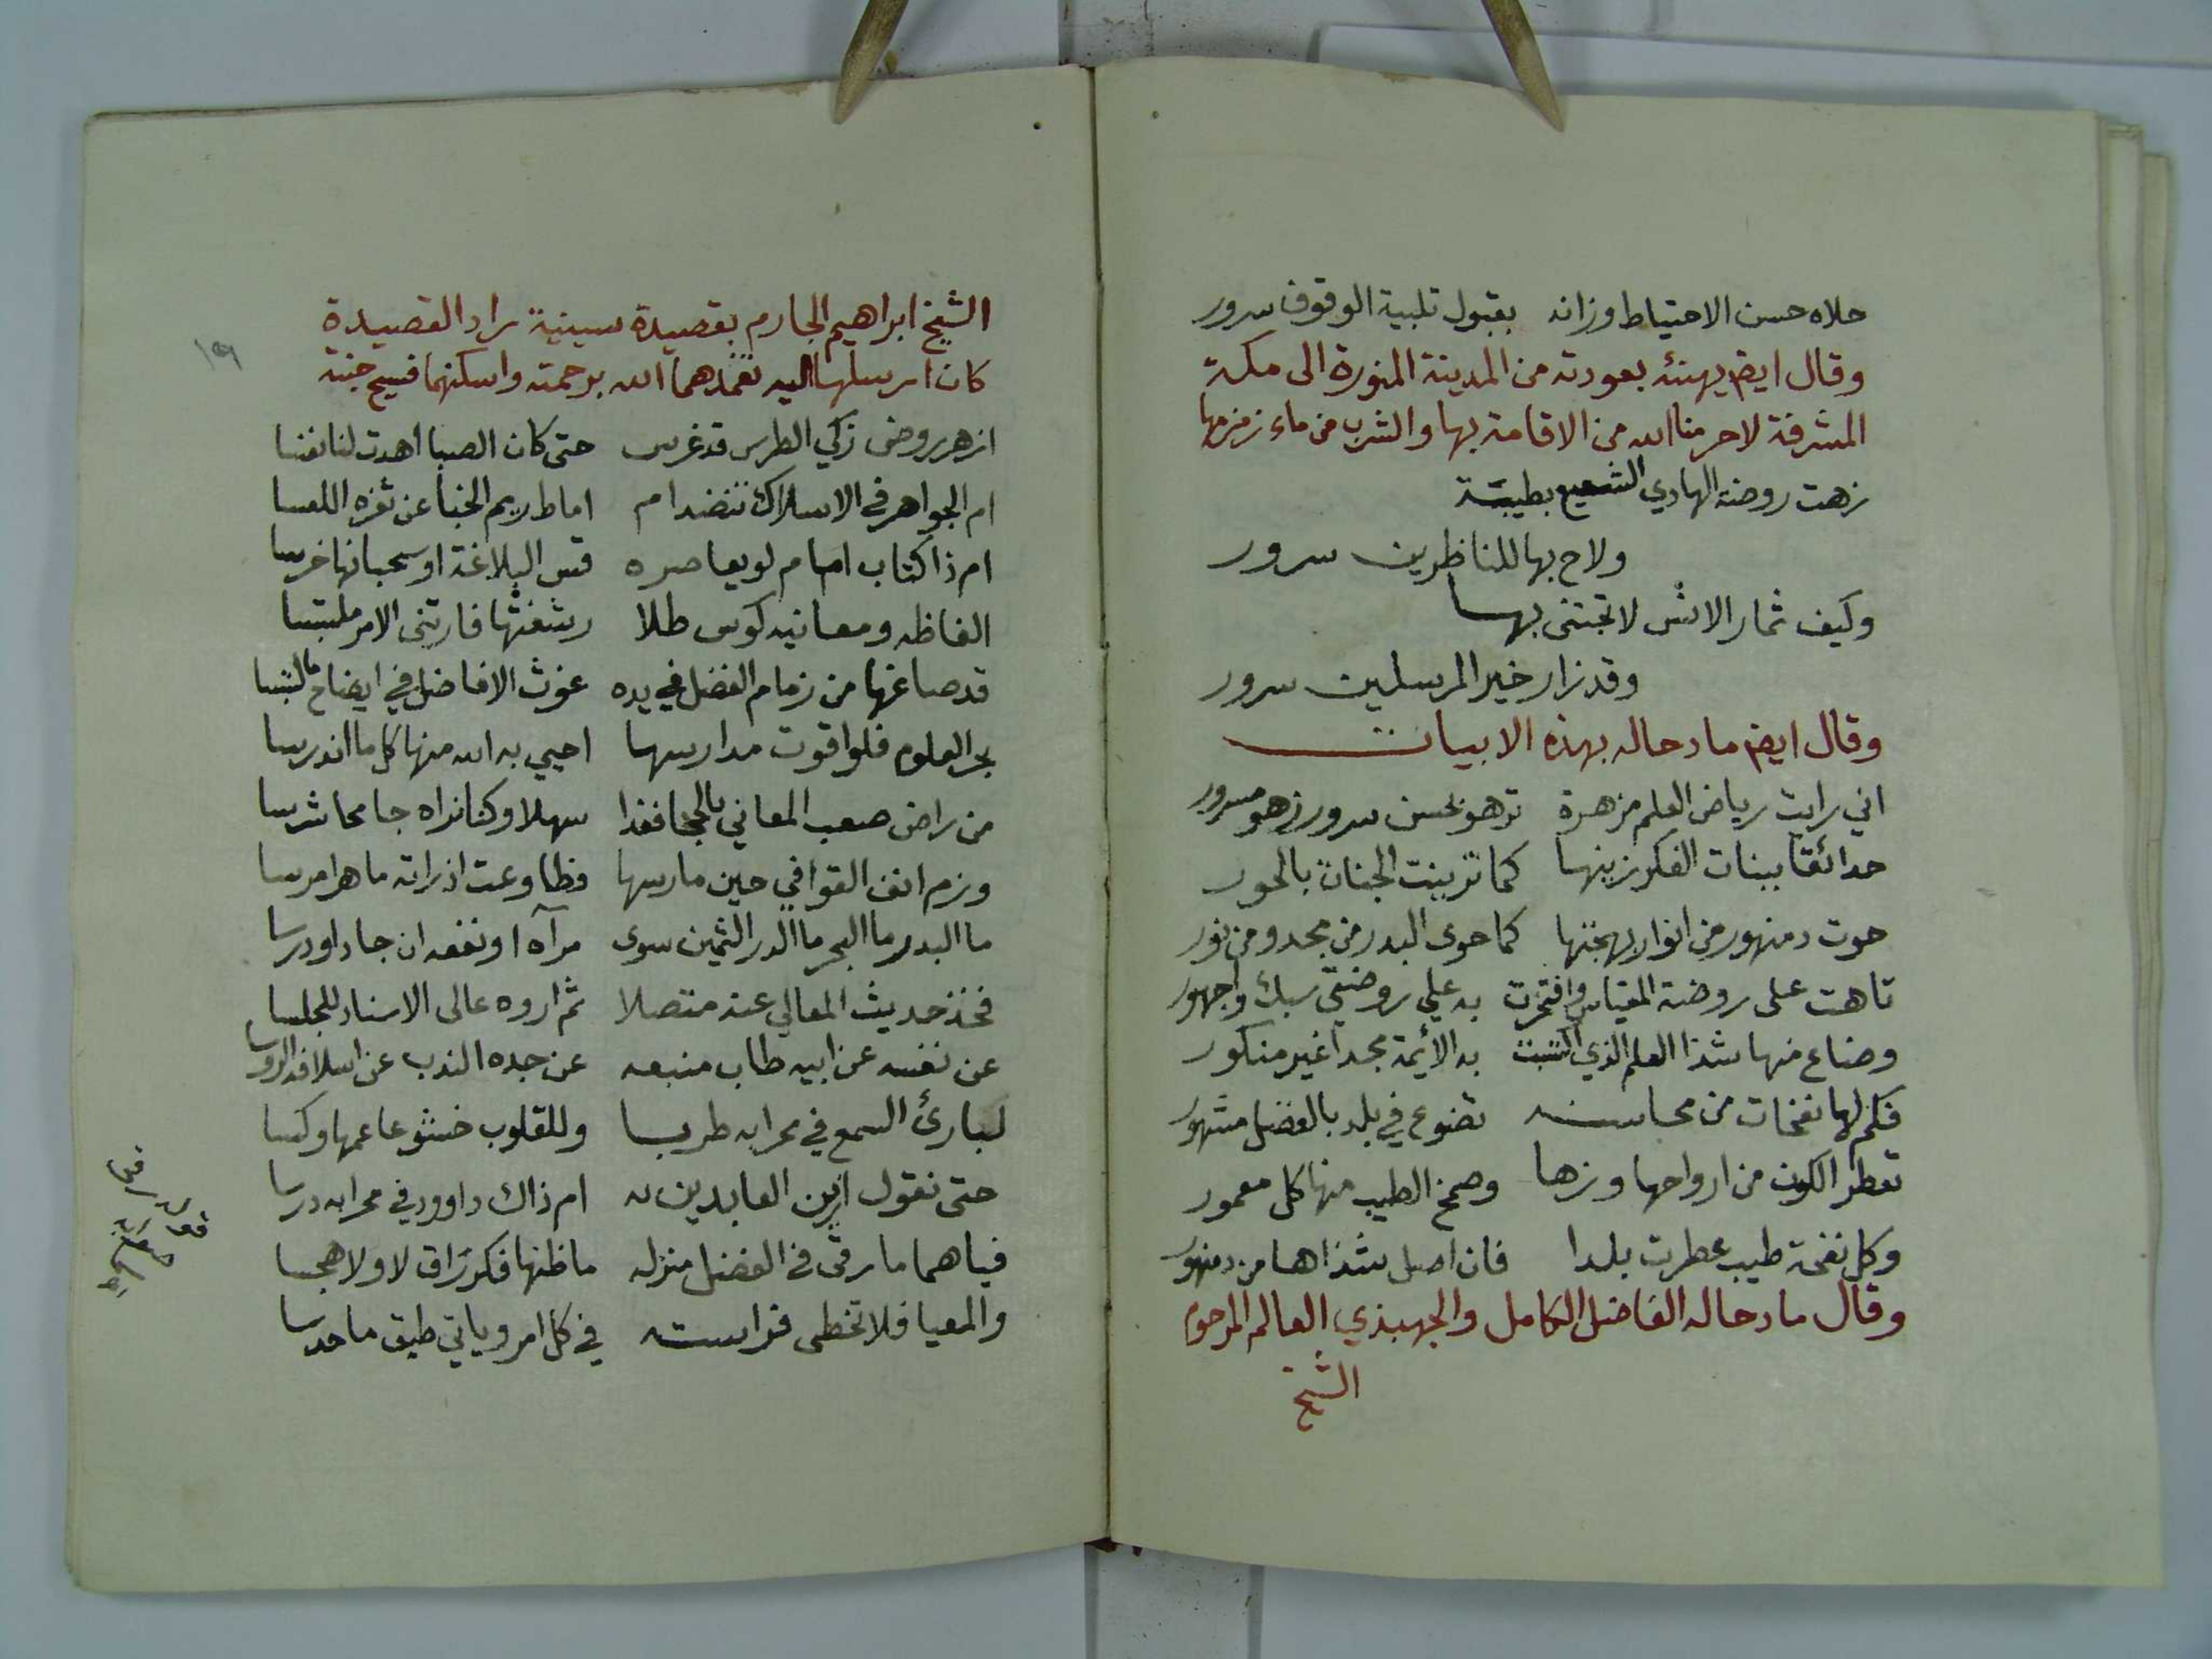 حلاه حسن الاحتياط وزانه بقبول تلبية الوقوف سرور
وقال ايضم يهنئه بعودته من المدينة المنورة الى مكة
المشرفة لاحرمنا الله من الاقامة بها والشرب من ماء زمزمها
زهت روضة الهادي الشفيع بطيبة
ولاح بها للناظرين سرور
وكيف ثمار الانس لا تجتنى بها
وقد زار خير المرسلين سرور
وقال ايضم مادحاله بهذه الابيات
اني رايت رياض العلم مزهرة تزهو بحسن سرور زهو مسرور
حدائقا ببنات الفكر زينها كما تزينت الجنان بالحور
حوت دمنهور من انوار بهجتها كما حوى البدر من مجد ومن نور
تاهت على روضة المقياس وافتخرت به علي روضتي سبك واجهور
وضاع منها شذا العلم الذي اكتسبت به الأئمة مجدا غير منكور
فكم لها نفحات من محاسنه تضوع في بلد بالفضل مشهور
تعطر الكون من ارواحها وزها وضمخ الطيب منها كل معمور
وكل نفحة طيب عطرت بلدا فان اصل شذاها من دمنهور
وقال مادحاله الفاضل الكامل والجهبذي العالم المرحوم
الشيخ
الشيخ ابراهيم الجارم بقصيدة سينية راد القصيدة
كان ارسلها اليه تغمدهما الله برحمته واسكنهما فسيح جنته
ازهر روض زكي الطرس قد غرس حتى كان الصبا اهدت لنا نفسا
ام الجواهر في الاسلاك تنضد ام اماط ريم الخبا عن ثغره اللعسا
ام ذا كتاب امام لو يعاصره قس البلاغة او سحبانها خرسا
الفاظه ومعانيه كوس طلا رشفتها فارتني الامر ملتبسا
قد صاغها من زمام الفضل في يده غوث الافاضل في ايضاح ما التبسا
بحر العلوم فلو اقوت مدارسها احيي به الله منها كل ما اندرسا
من راض صعب المعاني بالحجا فغدا سهلا وكنا نراه جامحا شرسا
وزم انف القوافي حين مارسها فطاوعت اذ راته ماهرا مرسا
ما البدر ما البحر ما الدر الثمين سوى مرآه او نفعه ان جاد او درسا
فخذ حديث المعالي عنه متصلا ثم اروه عالى الاسناد للجلسا
عن نفسه عن ابيه طاب منبعه عن جده الندب عن اسلافه الروسا
لبارئ السمع في محرابه طربا وللقلوب خشوعا عمها وكسا
حتى نقول ازين العابدين له ام ذاك داوود في محرابه درسا
فياهما ما رقى في الفضل منزله ما ظنها فكر راق لا ولا هجسا
والمعيا فلا تخطى فراسته في كل امر وياتي طبق ما حدسا